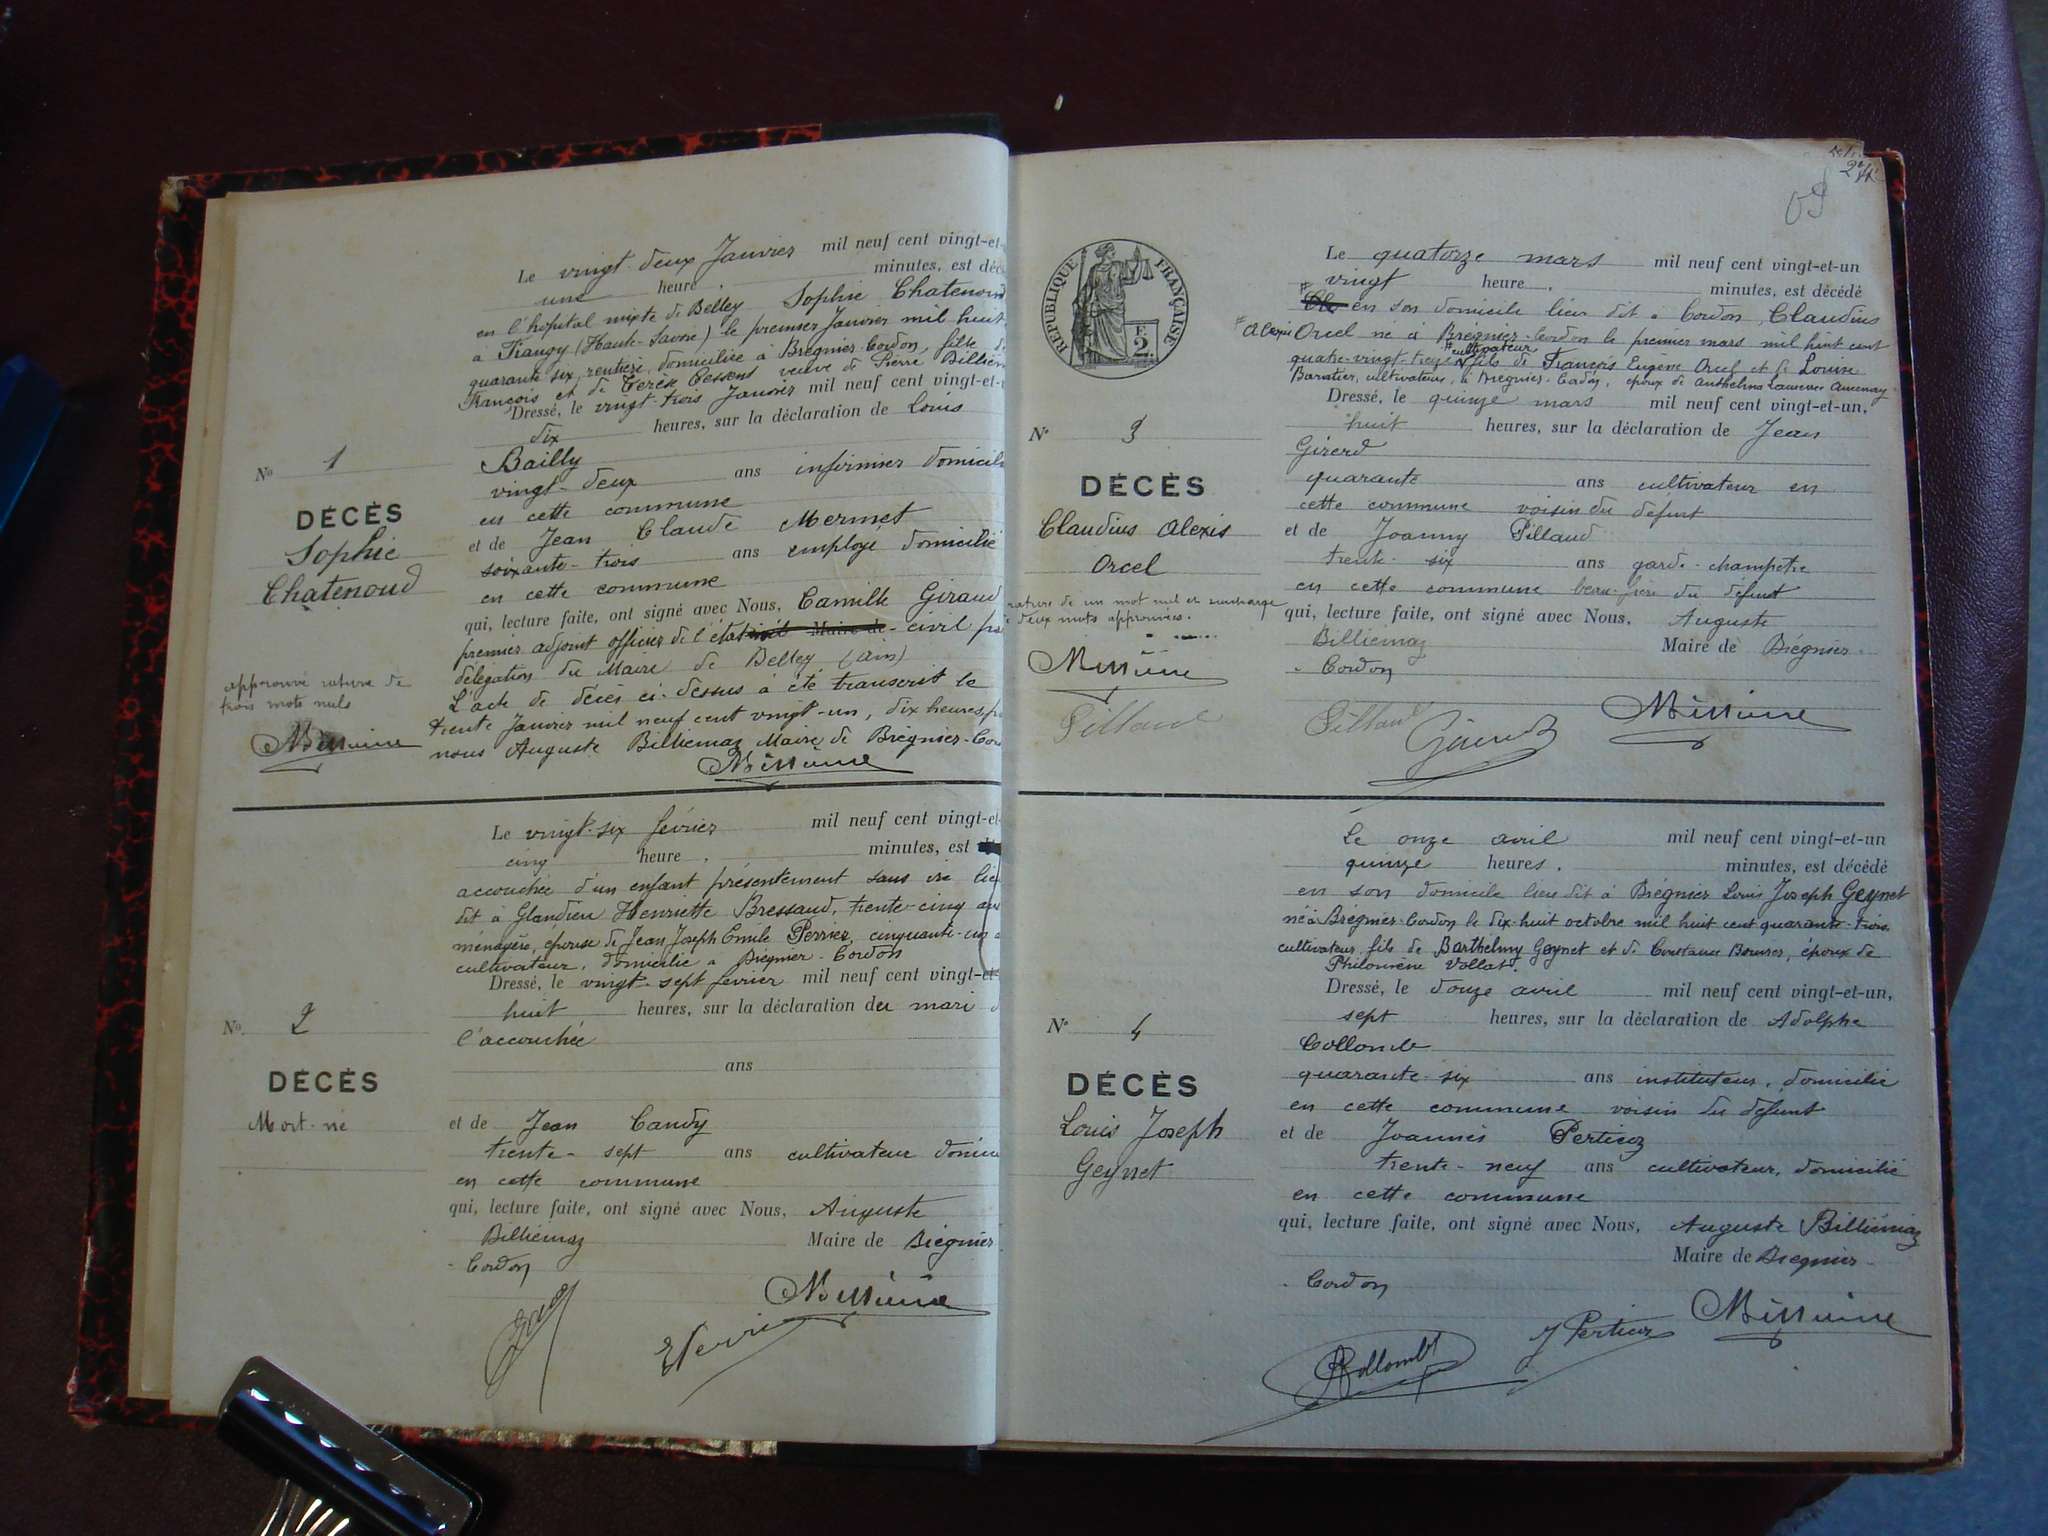 Le vingt-deux Janvier mil neuf cent vingt-et-
une heure. minutes, est déc
en l'hôpital mixte de Belley Sophie Chatenoud
à Frangy (Haute-Savoie) le premier Janvier mil huit
quarante six, rentière, domiciliée à Brégnier-Cordon, fille de
François et de Terèse Cessens veuve de Pierre Billiem
Dressé, le vingt-trois Janvier mil neuf cent vingt-et-
dix heures, sur la déclaration de Louis
Bailly
vingt-deux ans infirmier domicili
en cette commune
et de Jean Claude Mermet
soixante-trois ans employé domicilié
en cette commune
qui, lecture faite, ont signé avec Nous, Camille Giraud
premier adjoint officier de l'état Maire de civil pa
délégation du Maire de Belley (Ain)
L'acte de décès ci-dessus à été transcrit le
trente Janvier mil neuf cent vingt-un, dix heures, p
nous Auguste Billiemaz Maire de Brégnier-Cor
No 1
DÉCÈS
Sophie
Chatenoud
approuvé rature de
trois mots nuls
Le vingt-six février mil neuf cent vingt-et-
cinq heure. minutes, est
accouchée d'un enfant présentement sans vie lieu
dit à Glandieu Henriette Bressaud, trente-cinq ans
ménagère, épouse de Jean Joseph Emile Perrier, cinquante-un a
cultivateur, domicilié à Brégnier-Cordon
Dressé, le vingt-sept février mil neuf cent vingt-et-
huit heures, sur la déclaration du mari d
l'accouchée
ans
No 2
DÉCÈS
Mort-né
et de Jean Candy
trente-sept ans cultivateur domic
en cette commune
qui, lecture faite, ont signé avec Nous, Auguste
Billiemaz Maire de Brégnier
-Cordon
RÉPUBLIQUE FRANÇAISE
F.E.
2
Le quatorze mars mil neuf cent vingt-et-un
vingt heure. minutes, est décédé
en son domicile lieu dit à Cordon, Claudius
# Alexis Orcel né à Brégnier-Cordon le premier mars mil huit cent
quatre-vingt-treize # cultivateur fils de François Eugène Orcel et de Louise
Barratier, cultivateurs, à Brégnier-Cordon, époux de Anthelma Laurence
Dressé, le quinze mars mil neuf cent vingt-et-un,
huit heures, sur la déclaration de Jean
Girerd
quarante ans cultivateur en
cette commune voisin du défunt
et de Joanny Pillaud
trente-six ans garde-champêtre
en cette commune beau-frère du défunt
qui, lecture faite, ont signé avec Nous, Auguste
Billiemaz Maire de Brégnier-
-Cordon
No 3
DÉCÈS
Claudius Alexis
Orcel
rature de un mot nul et surcharge
de deux mots approuvés.
Pillaud
Pillaud Girerd
Le onze avril mil neuf cent vingt-et-un
quinze heures. minutes, est décédé
en son domicile lieu dit à Brégnier Louis Joseph Geynet
né à Brégnier-Cordon le dix-huit octobre mil huit cent quarante-trois
cultivateur, fils de Barthelmy Geynet et de Constance Bouvier, époux de
Philomène Vollat.
Dressé, le douze avril mil neuf cent vingt-et-un,
sept heures, sur la déclaration de Adolphe
Collomb
quarante-six ans instituteur, domicilié
en cette commune voisin du défunt
et de Joannès Perticoz
trente-neuf ans cultivateur, domicilié
en cette commune
qui, lecture faite, ont signé avec Nous, Auguste Billiemaz
Maire de Brégnier-
-Cordon
No 4
DÉCÈS
Louis Joseph
Geynet
J Perticoz
Collomb